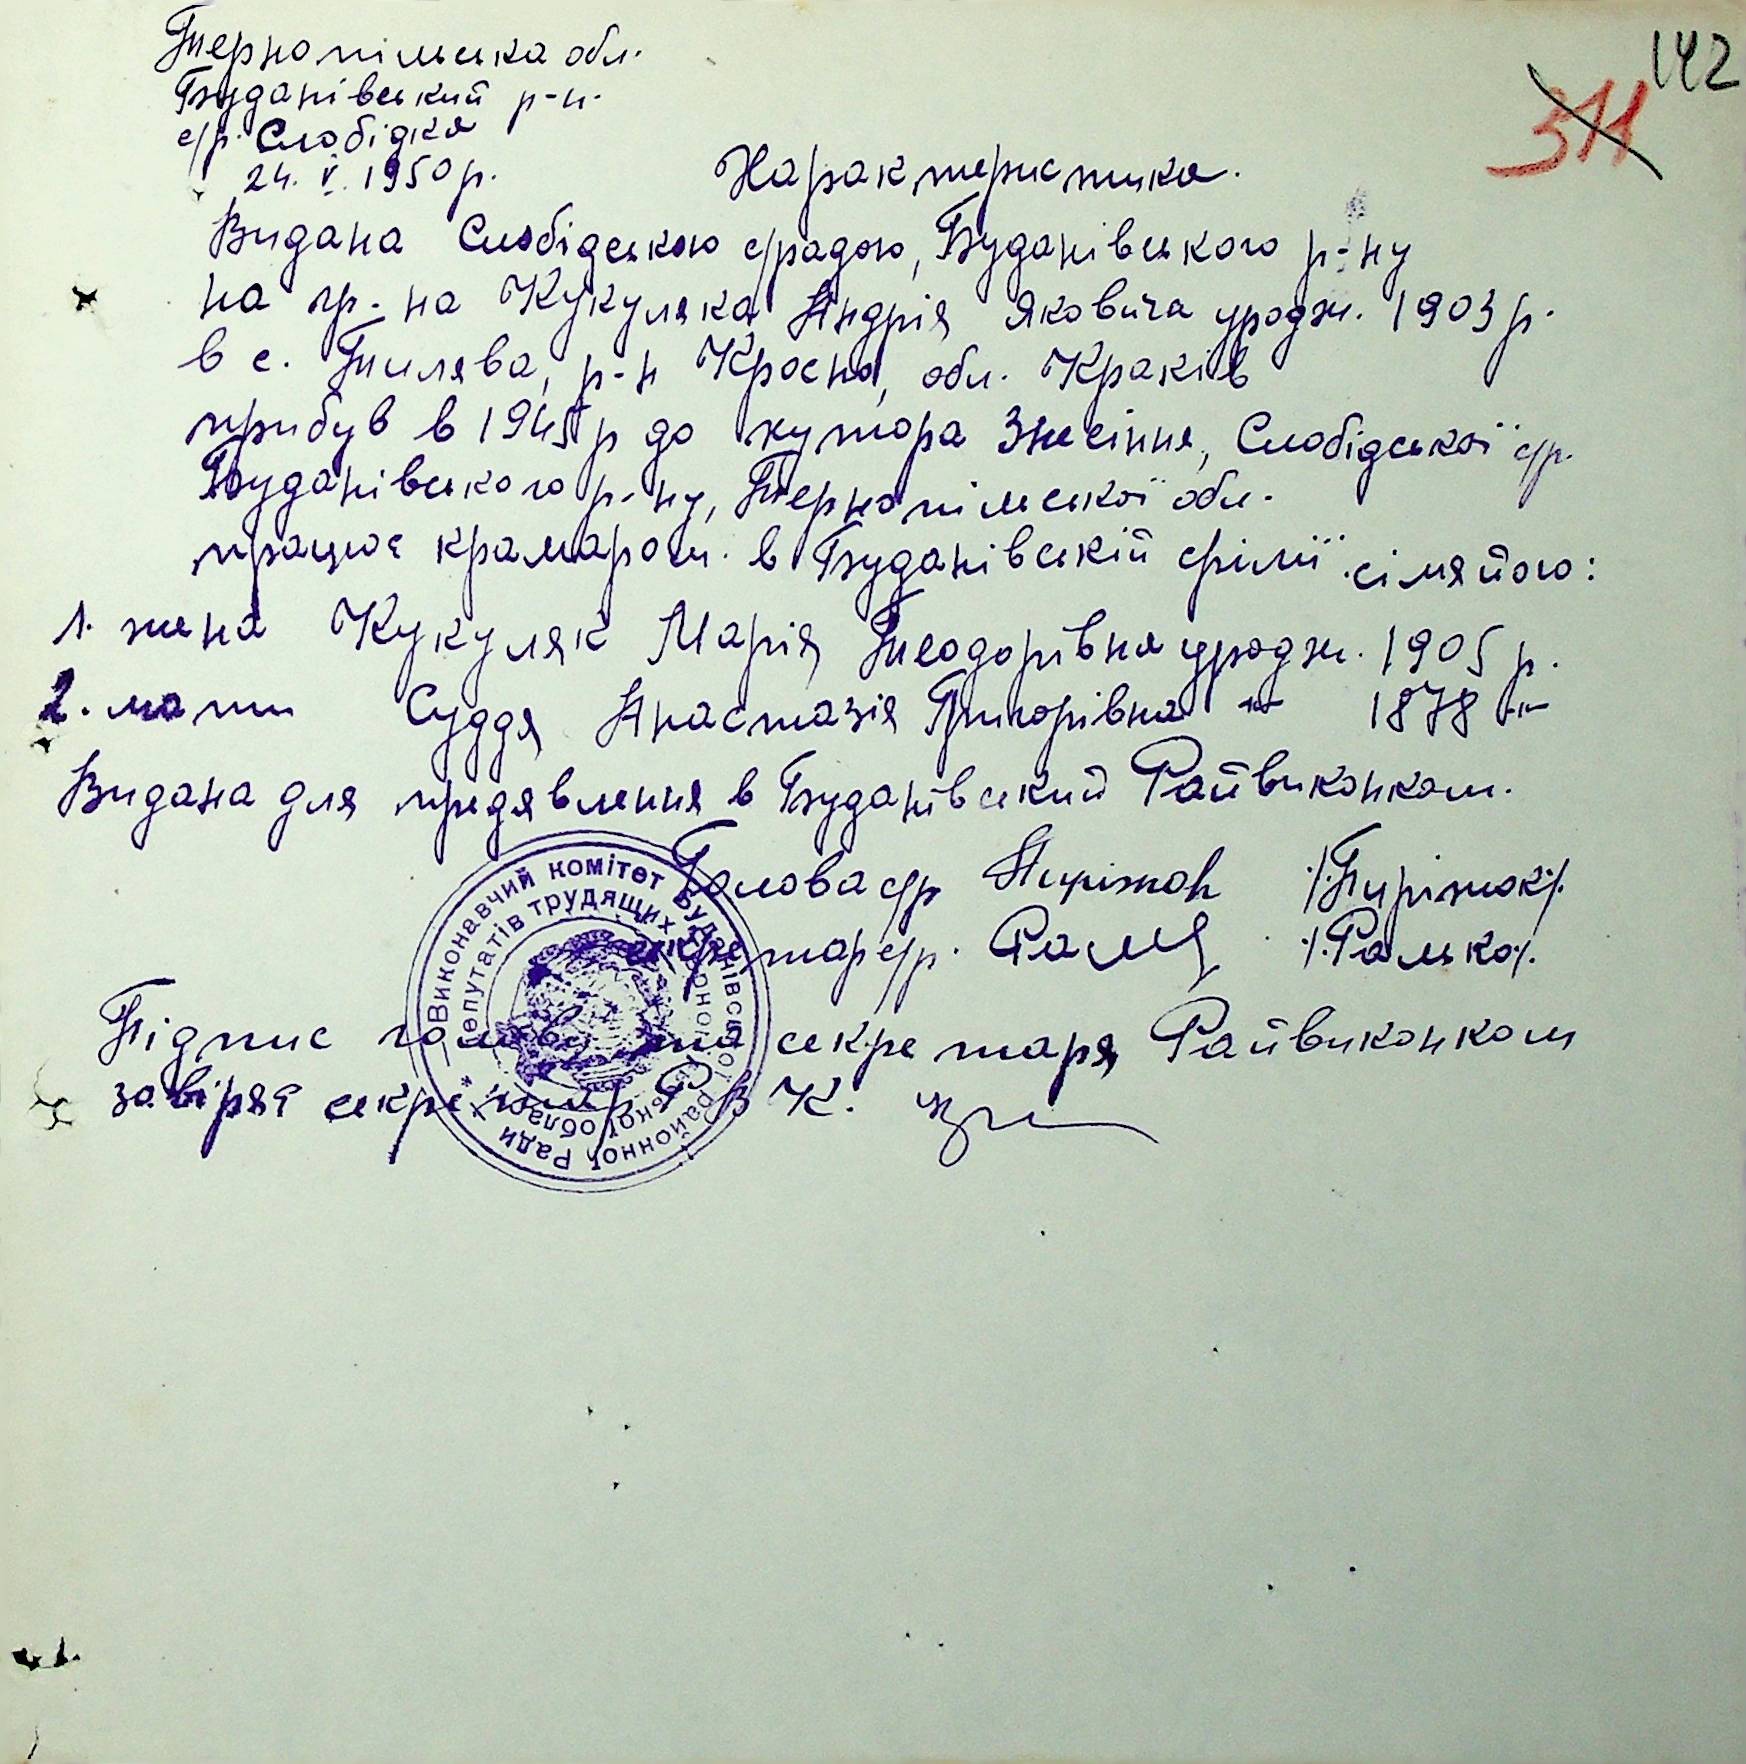 142
311
Тернопільська обл.
Буданівський р-н.
с/р. Слобідка
24. V. 1950 р.
Характеристика.
Видана Слобідською с/радою, Буданівського р-ну
на гр-на Кукуляка Андрія Яковича уродж. 1903 р.
в с. Тилява, р-н Кросно, обл. Краків
прибув в 1945 р до хутора Знесіння, Слобідської с/р.
Буданівського р-ну, Тернопільської обл.
працює крамаром. в Буданівській філії. сімя його:
1. жена Кукуляк Марія Теодорівна уродж. 1905 р.
2. мати Суддя Анастазія Григорівна -"- 1878 -"-
Видана для предявлення в Буданівський Райвиконком.
Голова с/р Пиріжок /Пиріжок/.
секретар с/р. /Ралько/.
Підпис голови та секретаря Райвиконком
завіряє секретар Р В К.
Виконавчий комітет Буданівської районної Ради
депутатів трудящих області